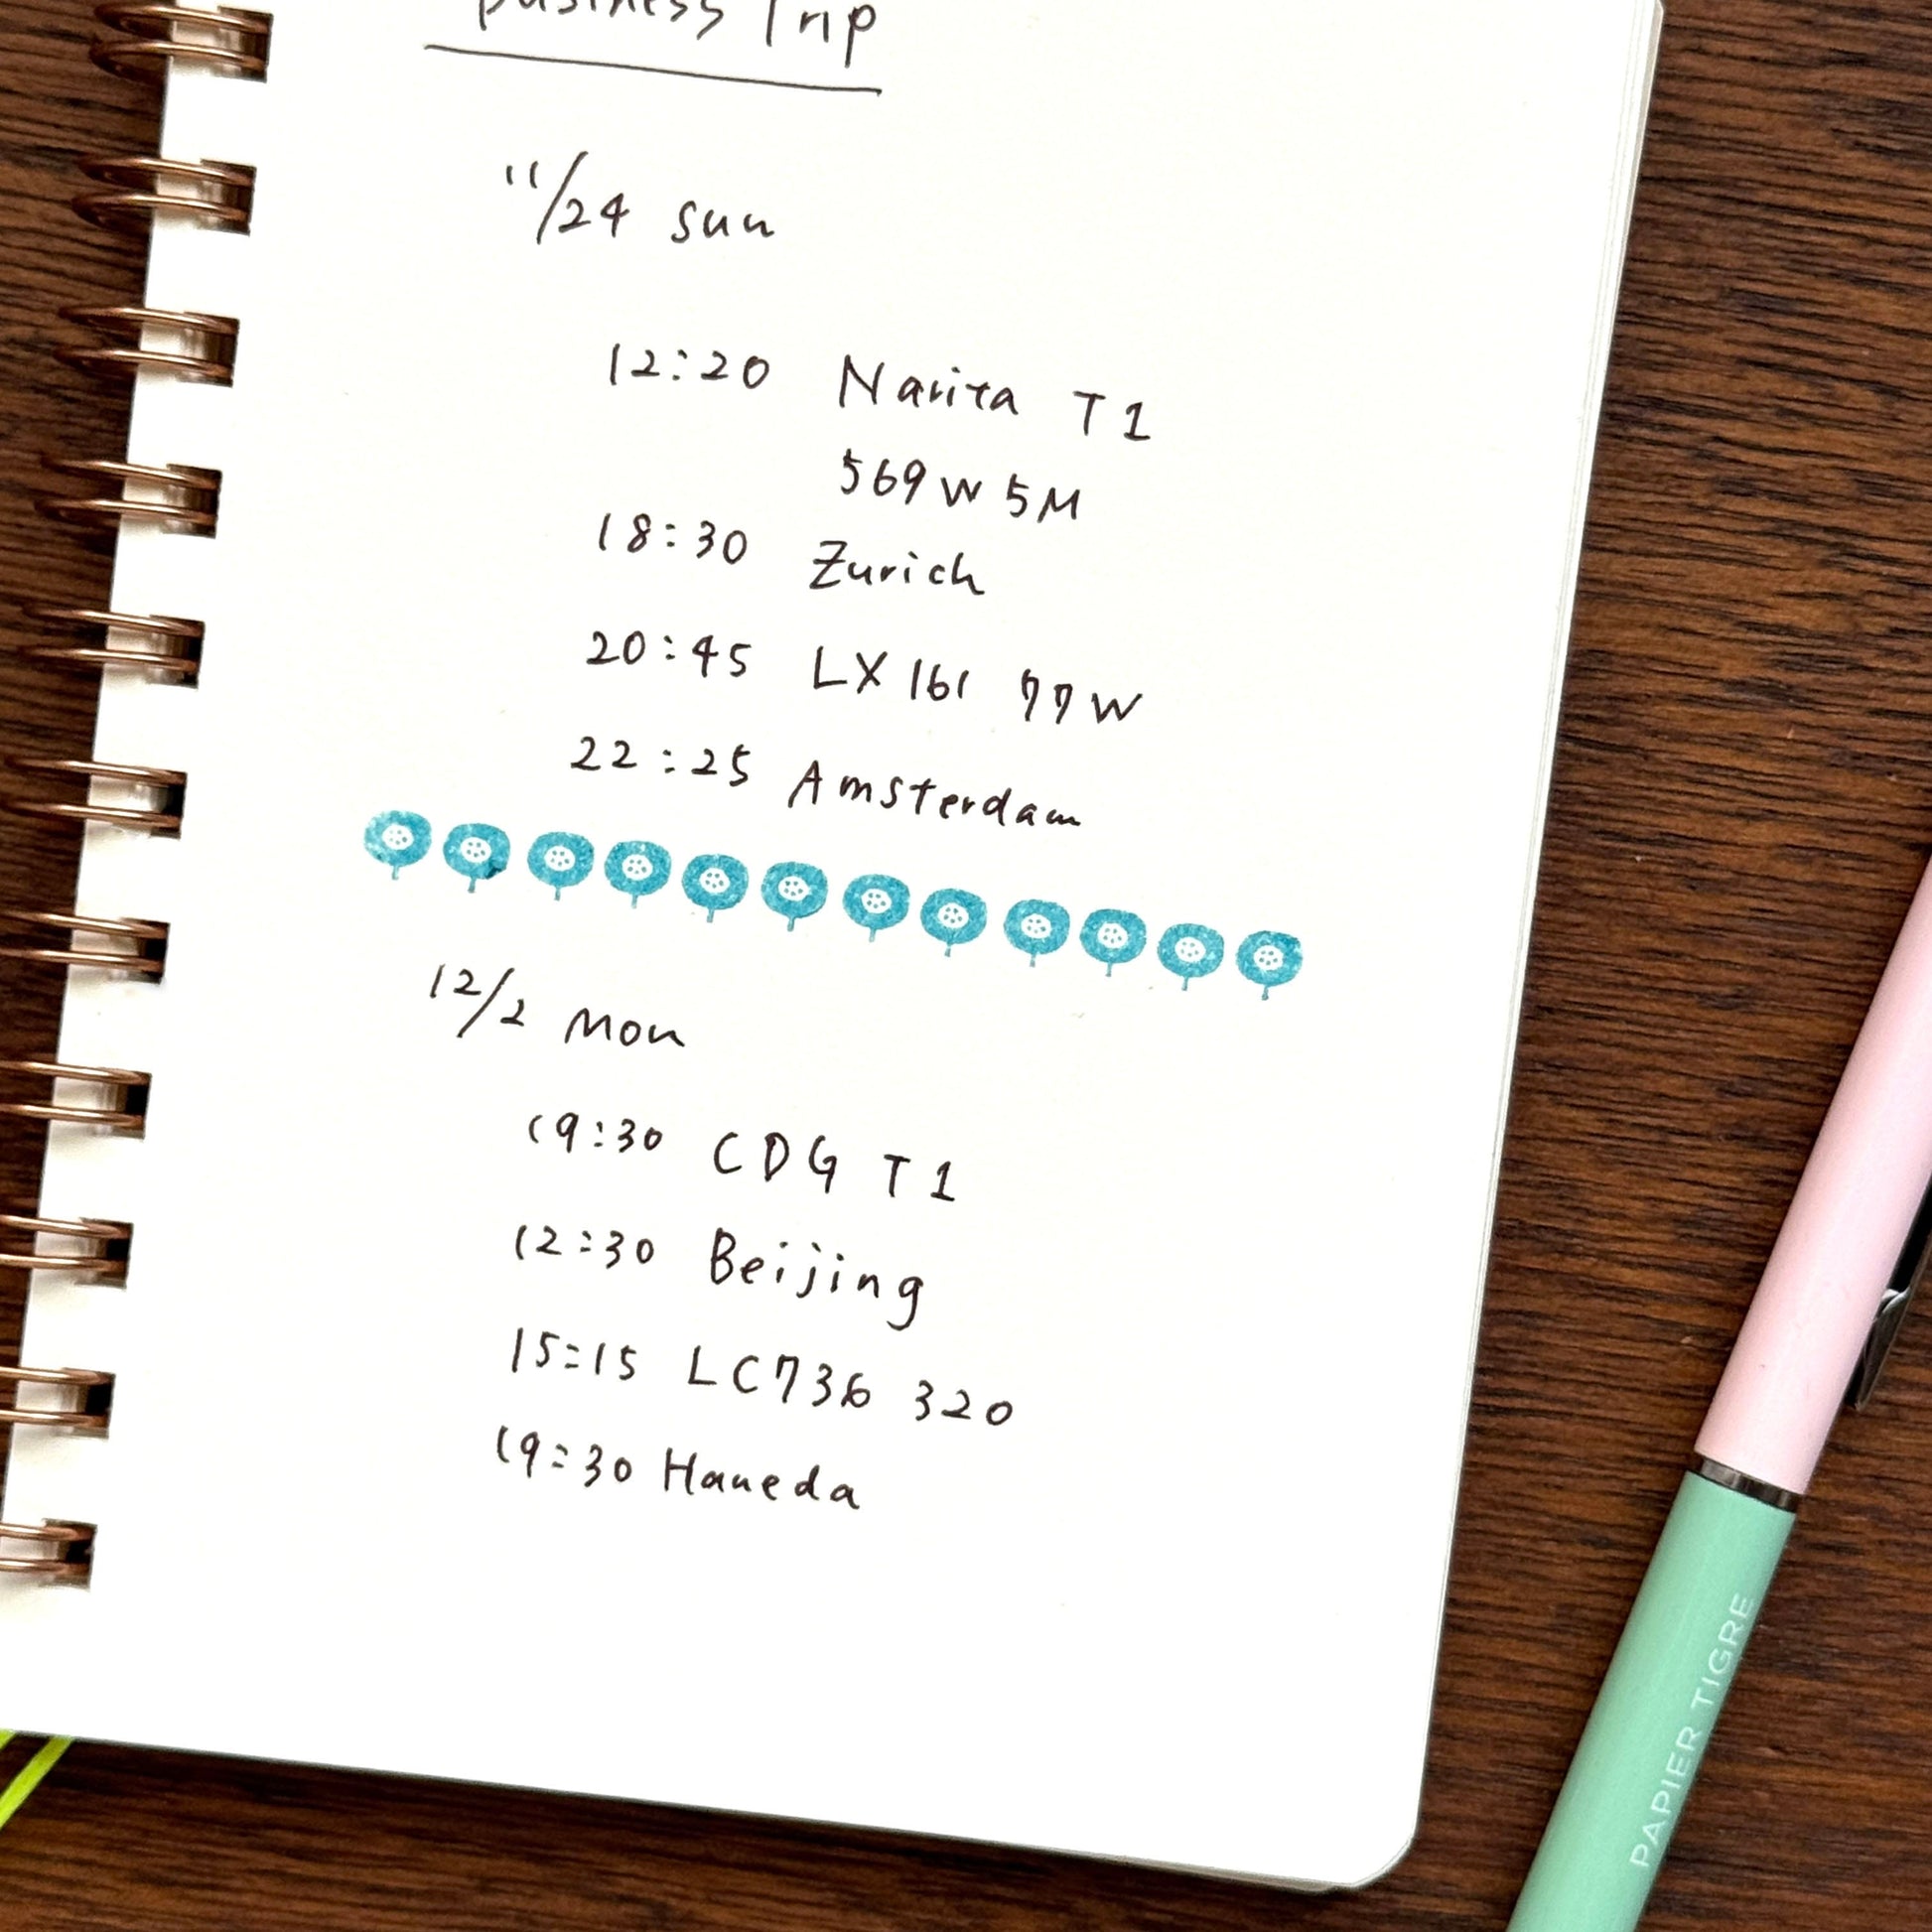 Business Trip
11/24 sun
12:20 Narita T1
569W5M
18:30 Zurich
20:45 LX161 77W
22:25 Amsterdam
12/2 Mon
19:30 CDG T1
12:30 Beijing
15:15 LC736 320
19:30 Haneda
PAPIER TIGRE